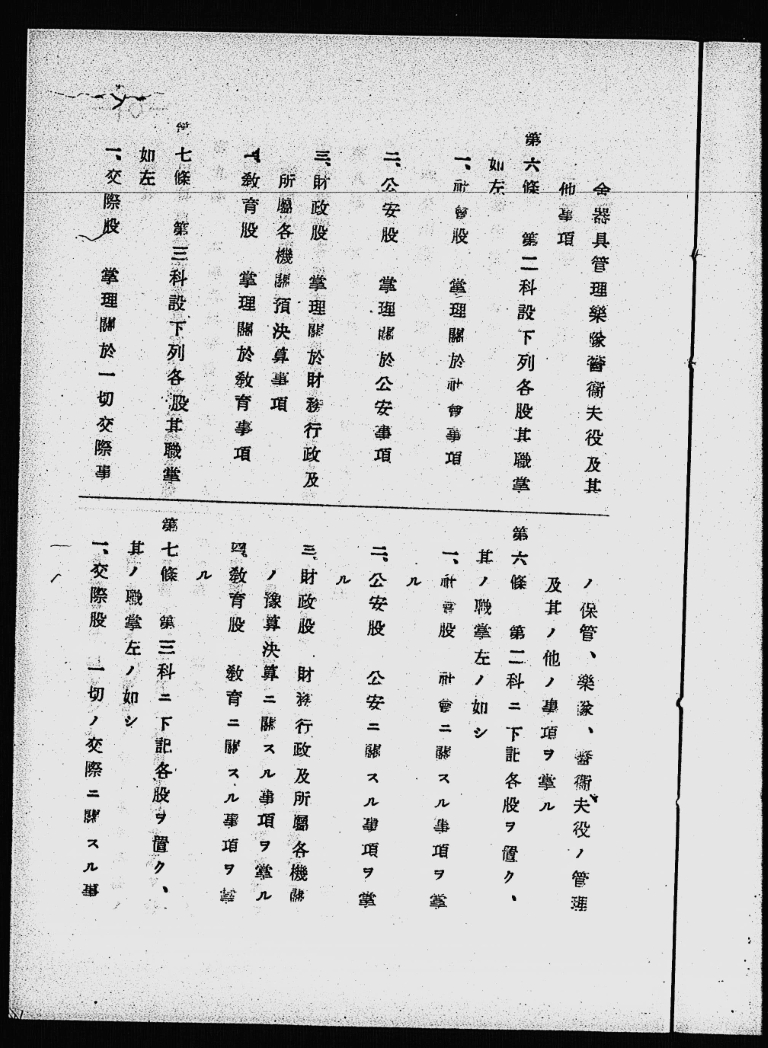 舍器具管理樂隊警衞夫役及其
他事項
第六條　第二科設下列各股其職掌
如左
一、社會股　掌理關於社會事項
二、公安股　掌理關於公安事項
三、財政股　掌理關於財務行政及
所屬各機關預決算事項
教育股　掌理關於教育事項
七條　第三科設下列各股其職掌
如左
一、交際股　掌理關於一切交際事
ノ保管、樂隊、警衞夫役ノ管理
及其ノ他ノ事項ヲ掌ル
第六條　第二科ニ下記各股ヲ置ク、
其ノ職掌左ノ如シ
一、社會股　社會ニ關スル事項ヲ掌
ル
二、公安股　公安ニ關スル事項ヲ掌
ル
三、財政股　財務行政及所屬各機關
ノ豫算決算ニ關スル事項ヲ掌ル
四、教育股　教育ニ關スル事項ヲ掌
ル
第七條　第三科ニ下記各股ヲ置ク、
其ノ職掌左ノ如シ
一、交際股　一切ノ交際ニ關スル事